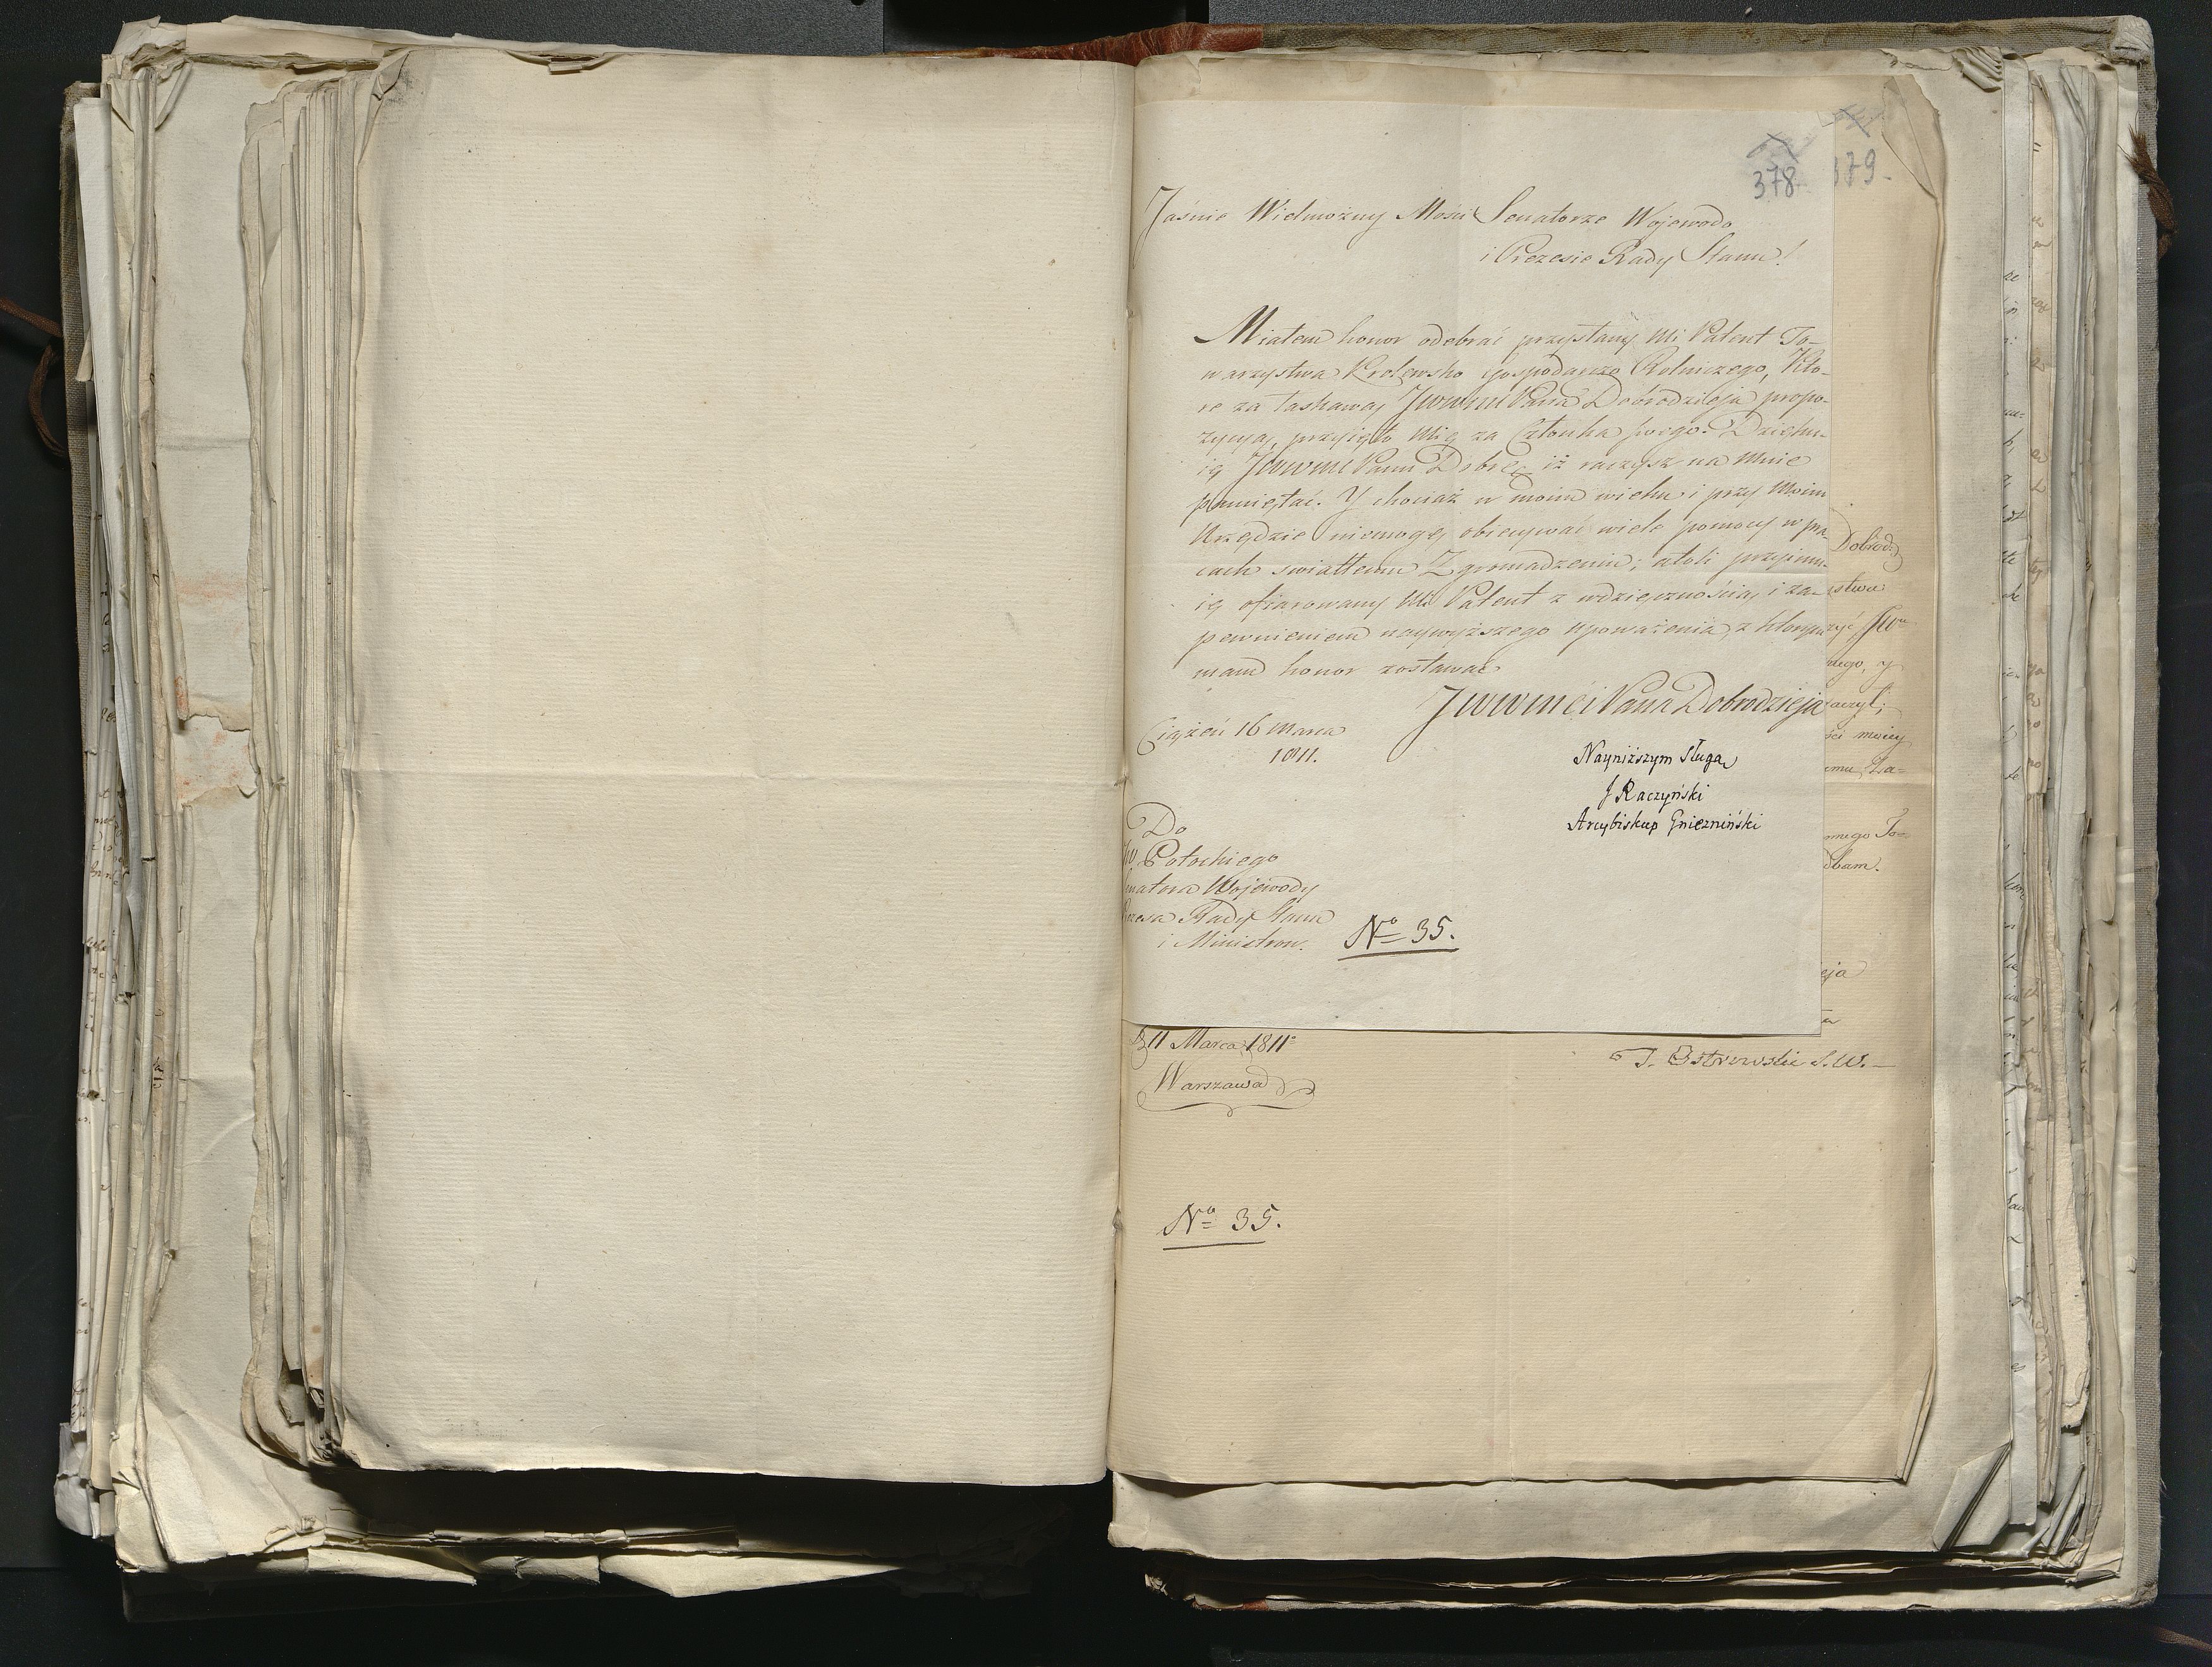 378
379.
Jaśnie Wielmożny Mości Senatorze Wojewodo
i Prezesie Rady Stanu!
Miałem honor odebrać przysłany Mi Patent To-
warzystwa Krolewsko Gospodarczo Rolniczego, Któ-
re za łaskawą JWWmci Pana Dobrodzieja propo-
zycyą, przyięło Mię za Członka swego. Dzięku-
ię JWWmci Panu Dobrę iż raczysz na Mnie
pamiętać. Y chociaż w moim wieku i przy Moim
Urzędzie niemogę obiecywać wiele pomocy w pra-
cach światłemu Zgromadzeniu; atoli przyimu-
ię ofiarowany Mi Patent z wdzięcznością i za-
pewnieniem naywyższego upoważenia, z którym
mam honor zostawać
JWWmci Pana Dobrodzieja
Ciążeń 16 Marca
1811.
Nayniższym Sługą
J Raczyński
Arcybiskup Gnieźniński
Do
Potockiego
Wojewody
Rady Stanu
i Ministrow.
No 35.
Dobrod:
stwa
JW
nego, y
raczył;
ści moiey
emu Za=
omego To=
dbam.
eja
D 11 Marca 1811o
Warszawa
T. Ostrowski S.W.
No 35.